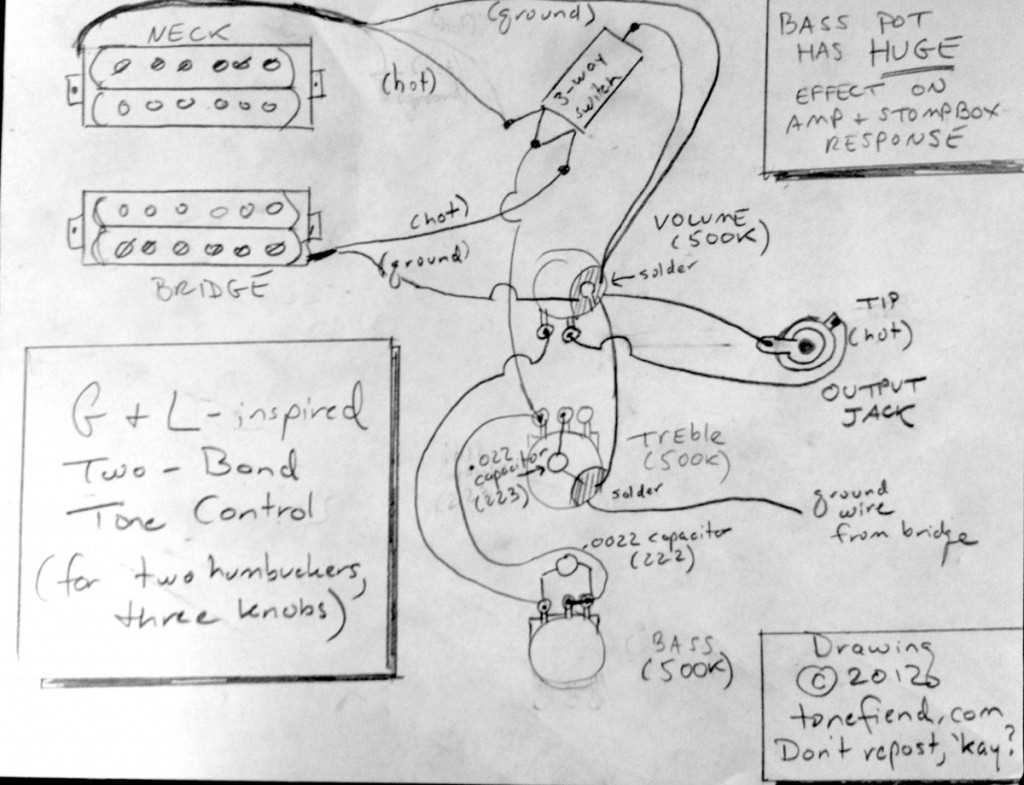 NECK
(ground)
(hot)
3-way
switch
BASS POT
HAS HUGE
EFFECT ON
AMP + STOMPBOX
RESPONSE
(hot)
(ground)
BRIDGE
VOLUME
(500K)
solder
TIP
(hot)
OUTPUT
JACK
G + L-inspired
Two-Band
Tone Control
(for two humbuckers,
three knobs)
.022
capacitor
(223)
TREBLE
(500K)
solder
ground
wire
from bridge
.0022 capacitor
(222)
BASS
(500K)
Drawing
© 2012
tonefiend.com
Don't repost, 'kay?